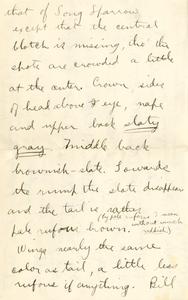 that of Song Sparrow
except that the central
blotch is missing, tho' the
spots are crowded a little
at the center. Crown, sides
of head above & eye, nape
and upper back slaty
gray. Middle back
brownish-slate. Towards
the rump the slate disappears
and the tail is rather
(by pale rufous I mean
without much
pale rufous brown.
Wings nearly the same
color as tail, a little less
rufous if anything. Bill